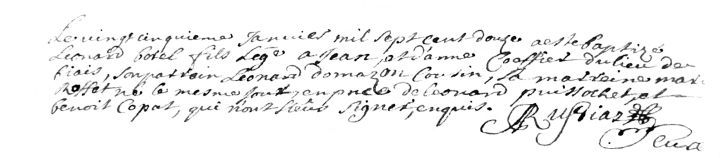 Le vingt cinquieme Janvier mil sept cent douze a este Baptizé
Leonard botel fils Lege a Jean, et d'anne Coeffier du lieu de
biais, son parrain Léonard domazon Cousin, Sa marreine mar
Roffet né le mesme jour, en pnce de leonard puissochet, et
benoit Copat, qui n'ont sceus signer, enquis.
Rusdiaz
Cura